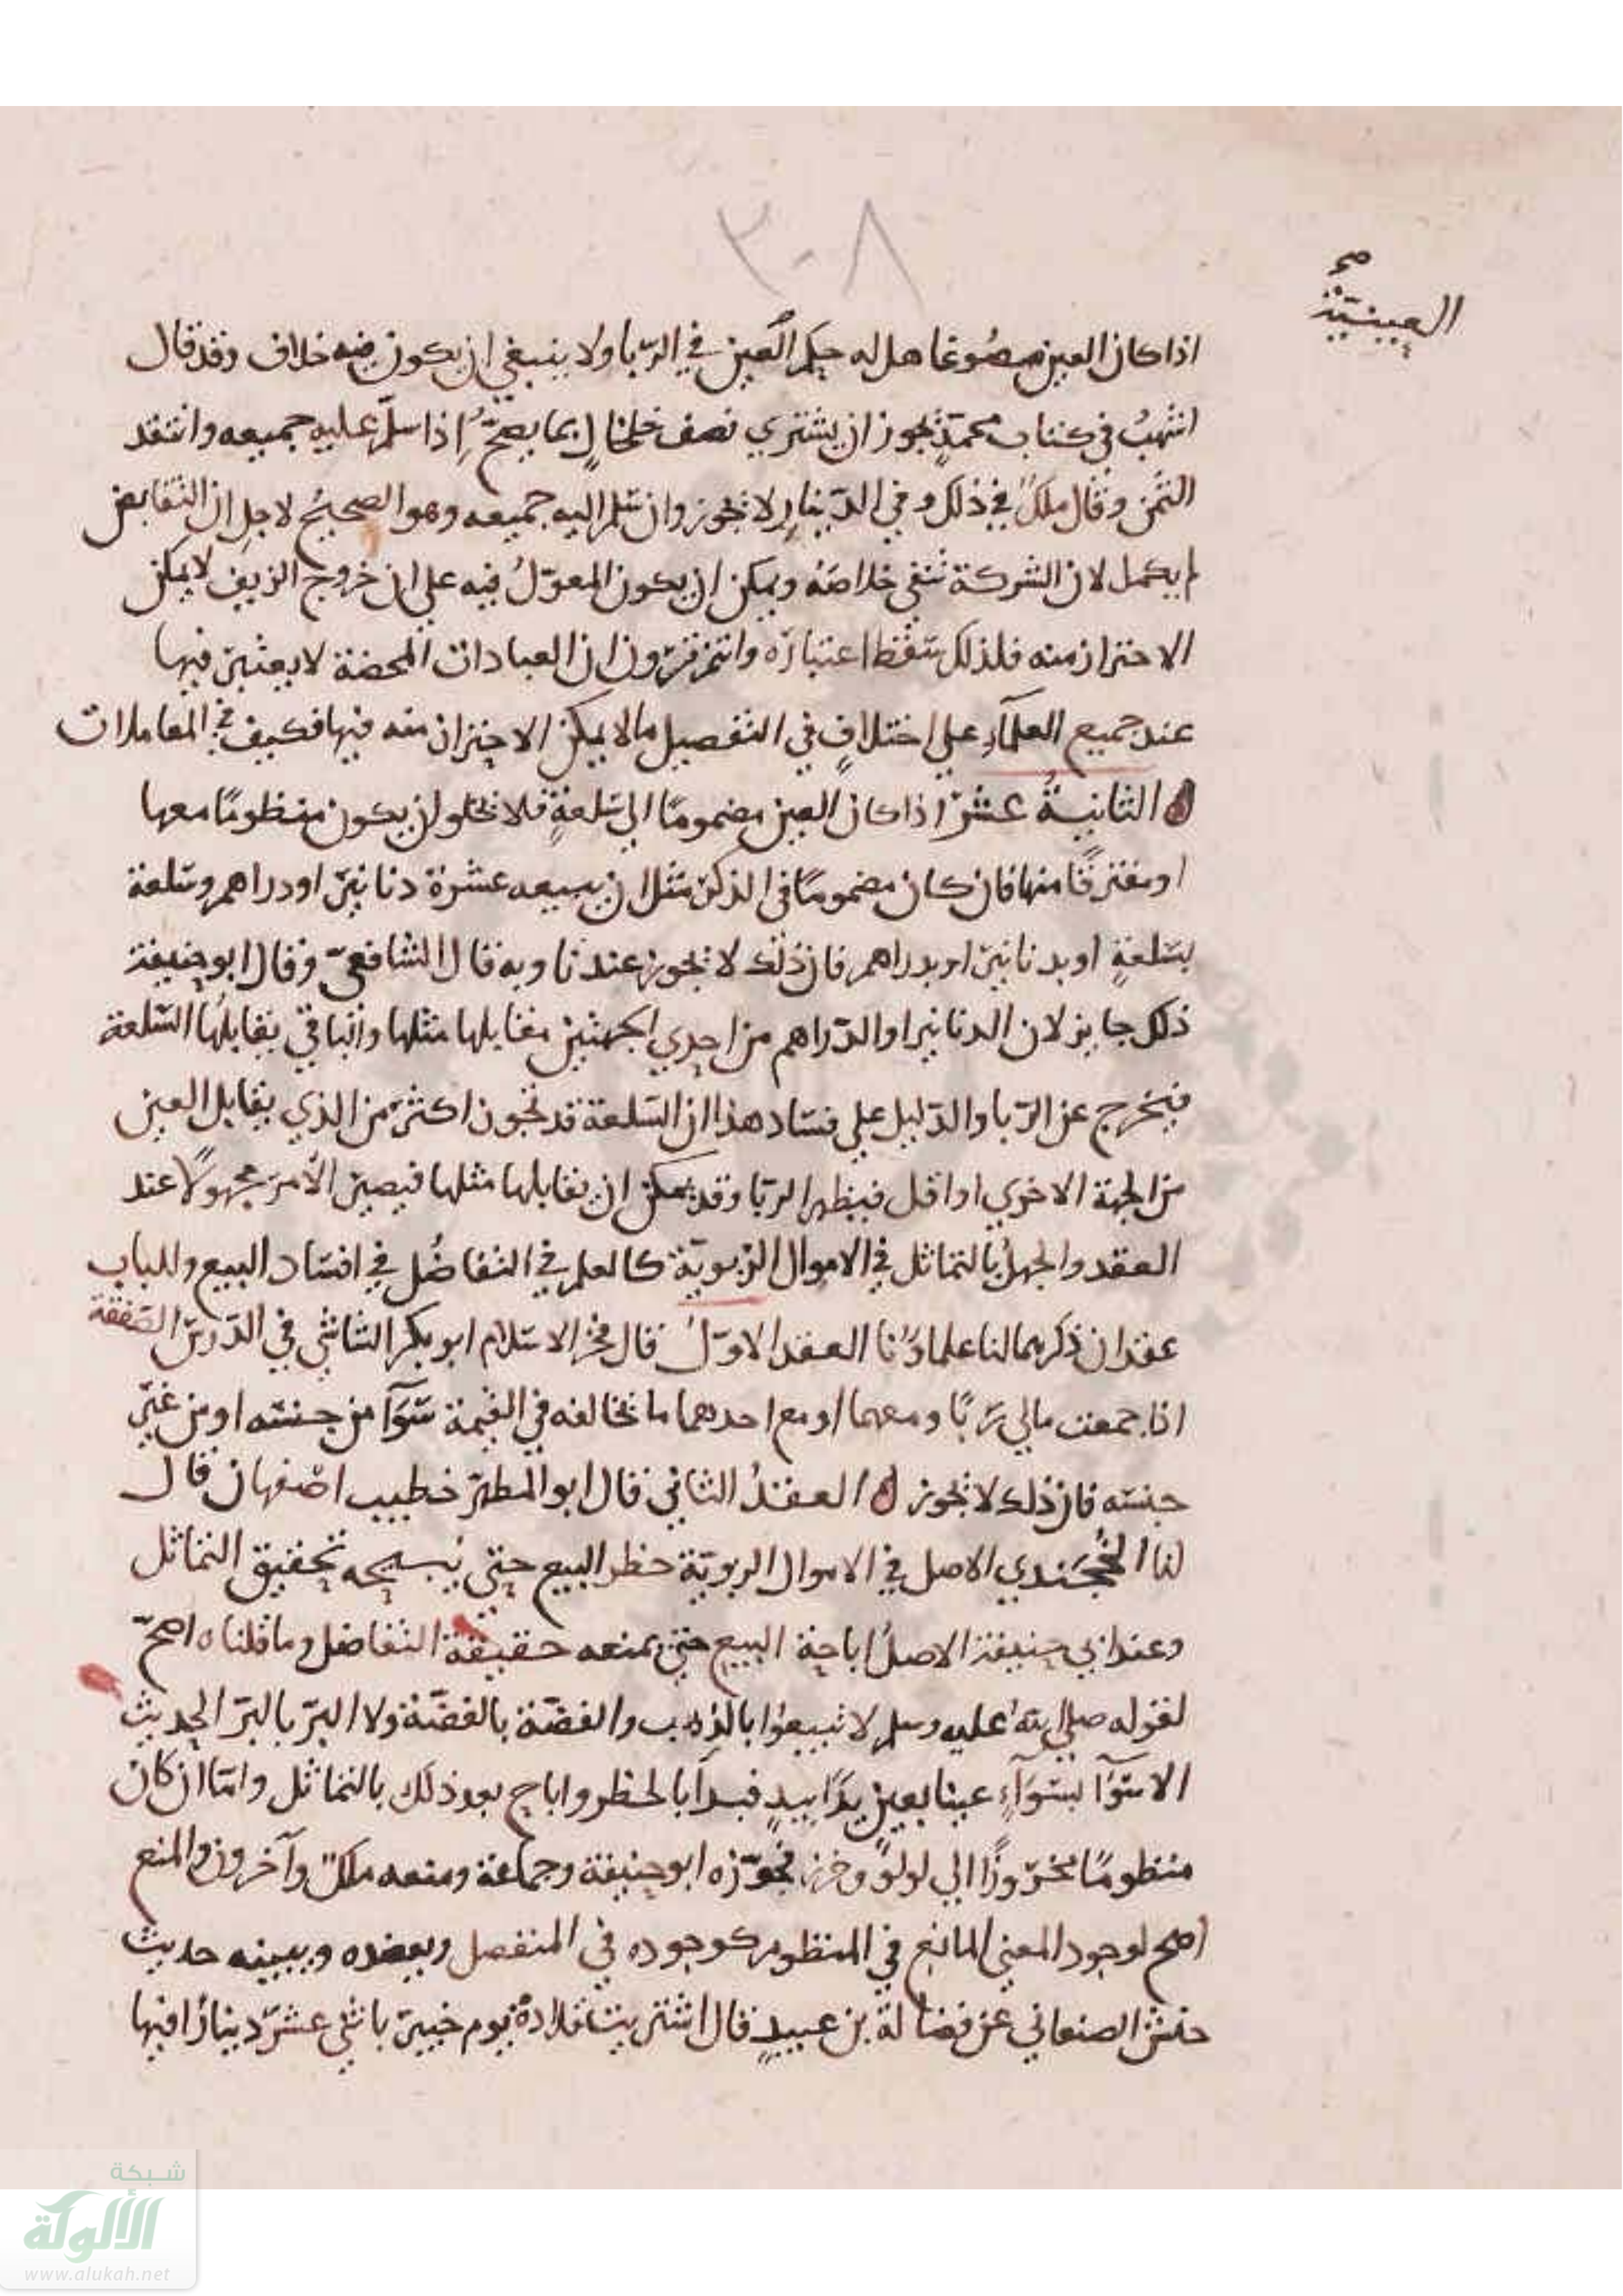 ٣٠٨
صح
العينيتين
اذا كان العين مصوغا هل له حكم العين في الربا ولا ينبغي ان يكون فيه خلاف وقد قال
اشهب في كتاب محمد يجوز ان يشتري نصف خلخال بما يصح اذا سلم عليه جميعه وانتقد
الثمن وقال ملك في ذلك وفي الدينار لا يجوز وان سلم اليه جميعه وهو الصحيح لاجل ان التقابض
لم يكمل لان الشركة تنفي خلاصه ويمكن ان يكون المعول فيه علي ان خروج الزيف لا يمكن
الاحتراز منه فلذلك سقط اعتباره وانتم ترون ان العبادات المحضة لا يعتبر فيها
عند جميع العلماء علي اختلاف في التفصيل ما لا يمكن الاحتراز منه فيها فكيف في المعاملات
الثانية عشر اذا كان العين مضموما الي سلعة فلا يخلو ان يكون منظوما معها
او مفترقا منها فان كان مضموما في الذكر مثل ان يبيعه عشرة دنانير او دراهم وسلعة
بسلعة او بدنانير او بدراهم فان ذلك لا يجوز عندنا وبه قال الشافعي وقال ابو حنيفة
ذلك جايز لان الدنانير او الدراهم من احدي الجهتين يقابلها مثلها والباقي يقابلها السلعة
فيخرج عن الربا والدليل علي فساد هذا ان السلعة قد تكون اكثر من الذي يقابل العين
من الجهة الاخري او اقل فيظهر الربا وقد يمكن ان يقابلها مثلها فيصير الامر مجهولا عند
العقد والجهل بالتماثل في الاموال الربوية كالعلم في التفاضل في افساد البيع وللباب
عقدان ذكرهما لنا علماؤنا العقد الاول قال فخر الاسلام ابو بكر الشاشي في الدرس الصفقة
اذا جمعت مالي ربا ومعهما او مع احدهما ما يخالفه في القيمة سوآ من جنسه او من غير
جنسه فان ذلك لا يجوز العقد الثاني قال ابو المطهر خطيب اصفهان قال
لنا الخجندي الاصل في الاموال الربوية حظر البيع حتي يبيحه تحقيق التماثل
وعند ابي حنيفة الاصل اباحة البيع حتي يمنعه حقيقة التفاضل وما قلناه اصح
لقوله صلي الله عليه وسلم لا تبيعوا بالذهب والفضة بالفضة ولا البر بالبر الحديث
الا سوآ بسوآء عينا بعين يدا بيد فبدا بالحظر واباح بعد ذلك بالتماثل واما ان كان
منظوما مخروزا الي لولو وخرز فجوزه ابو حنيفة وجماعة ومنعه ملك وآخرون والمنع
اصح لوجود المعني المانع في المنظوم كوجوده في المنفصل ويعضده ويبينه حديث
حنش الصنعاني عن فضالة بن عبيد قال اشتريت قلادة يوم خيبر باثني عشر دينارا فيها
شبكة
الألوكة
www.alukah.net